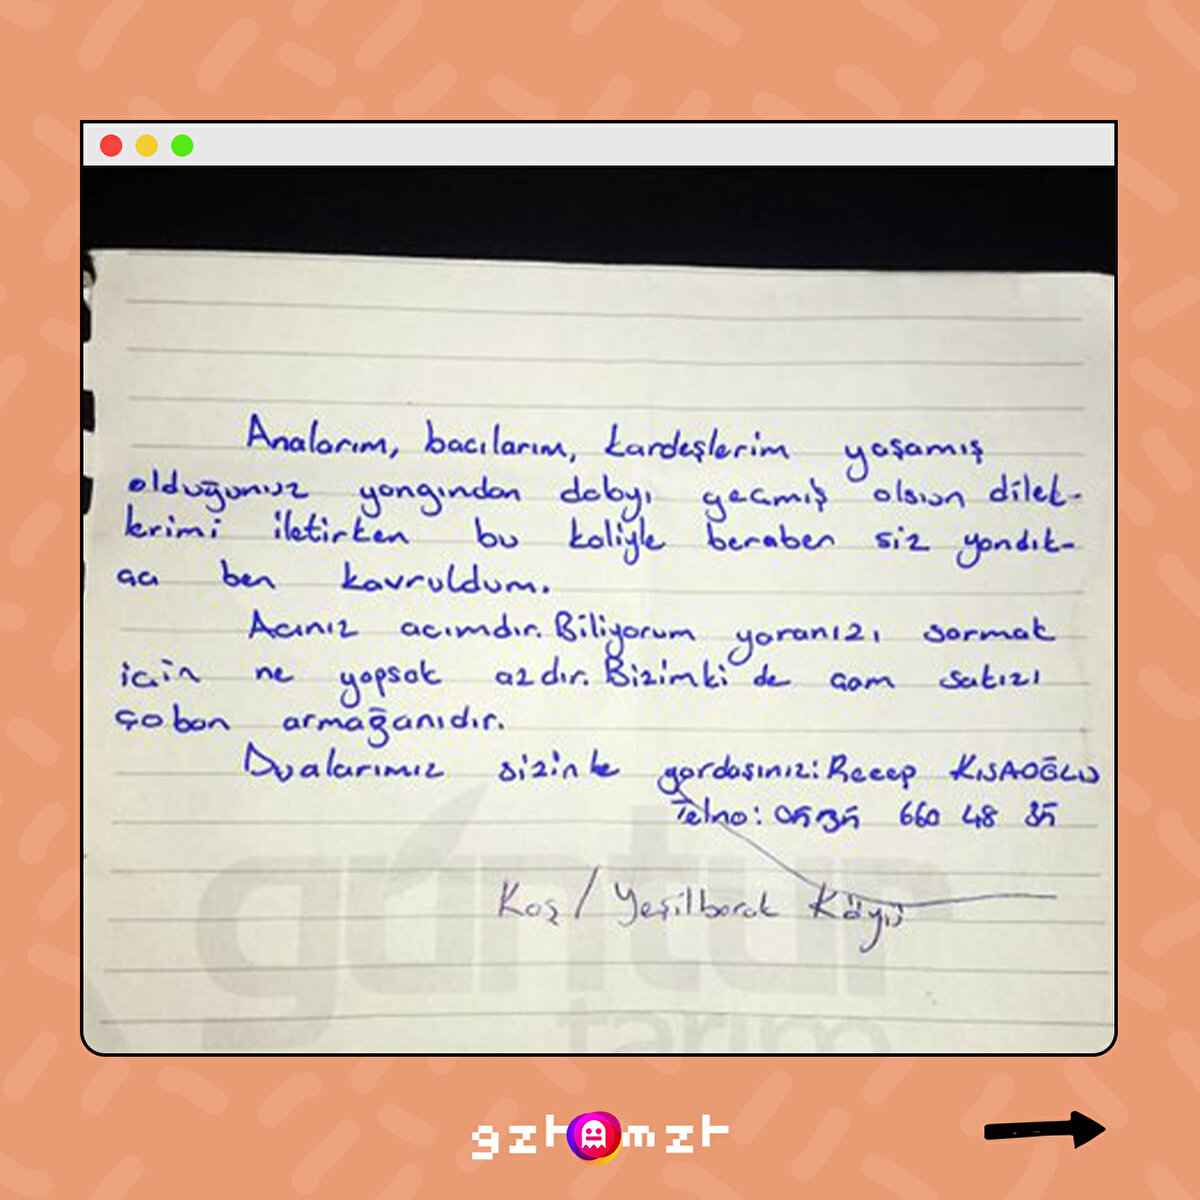 Analarım, bacılarım, kardeşlerim yaşamış
olduğunuz yangından dolayı geçmiş olsun dilek-
lerimi iletirken bu koliyle beraber siz yandık-
ca ben kavruldum.
Acınız acımdır. Biliyorum yaranızı sarmak
için ne yapsak azdır. Bizimki de çam sakızı
çoban armağanıdır.
Dualarımız sizinle gardaşınız: Recep KISAOĞLU
Telno: 0535 660 48 35
Kaş / Yeşilbarak Köyü
güntur
tarım
gzt mzt